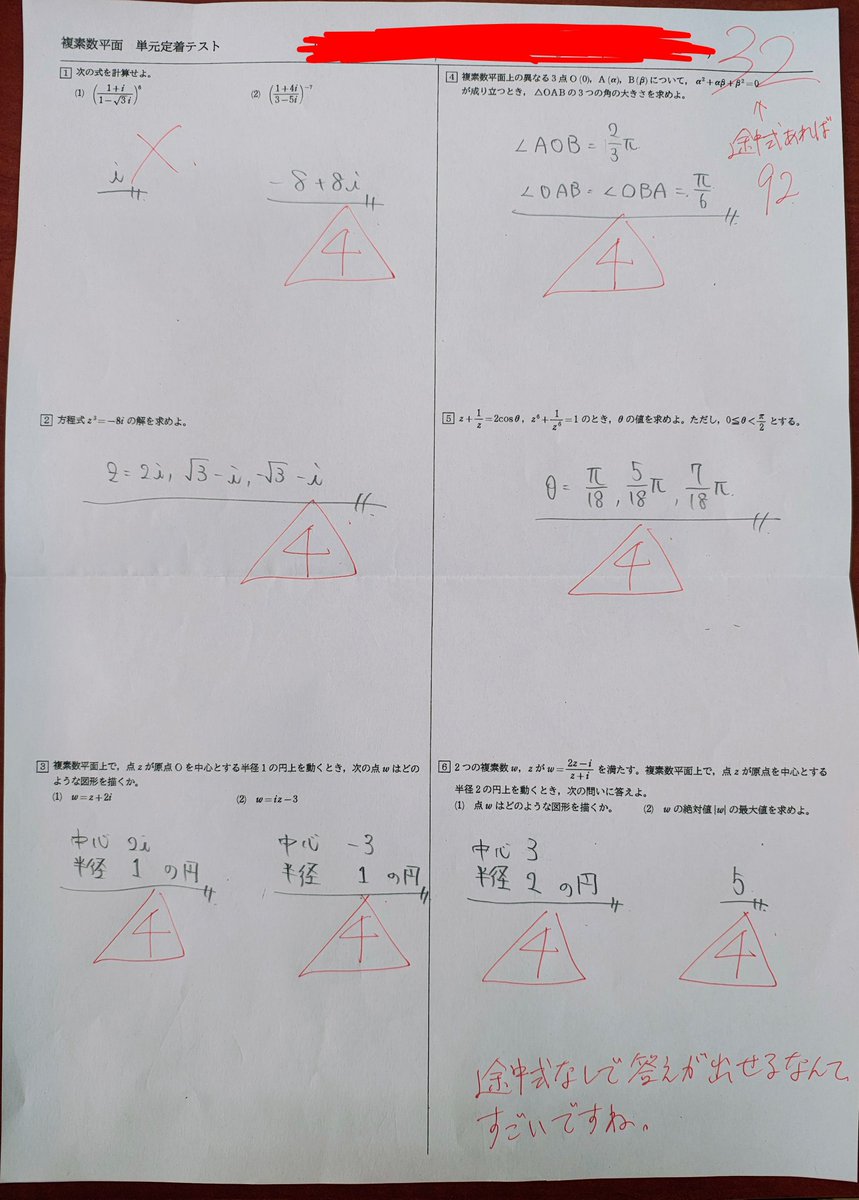 複素数平面 単元定着テスト
32
↑
途中式あれば
92
1 次の式を計算せよ。
(1) ((1+i)/(1-√3i))^6 (2) ((1+4i)/(3-5i))^-7
i
-8+8i
4
2 方程式 z³=-8i の解を求めよ。
z=2i, √3-i, -√3-i
4
3 複素数平面上で,点 z が原点 O を中心とする半径1の円上を動くとき,次の点 w はどの
ような図形を描くか。
(1) w=z+2i (2) w=iz-3
中心 2i
半径 1 の円
4
中心 -3
半径 1 の円
4
4 複素数平面上の異なる3点 O(0), A(α), B(β) について, α²+αβ+β²=0
が成り立つとき, △OAB の3つの角の大きさを求めよ。
∠AOB=2/3π
∠OAB=∠OBA=π/6
4
5 z+1/z=2cosθ, z⁶+1/z⁶=1 のとき, θ の値を求めよ。ただし, 0≦θ<π/2 とする。
θ=π/18, 5/18π, 7/18π
4
6 2つの複素数 w, z が w=(2z-i)/(z+i) を満たす。複素数平面上で,点 z が原点を中心とする
半径2の円上を動くとき,次の問いに答えよ。
(1) 点 w はどのような図形を描くか。 (2) w の絶対値|w|の最大値を求めよ。
中心 3
半径 2 の円
4
5
4
途中式なしで答えが出せるなんて、
すごいですね。